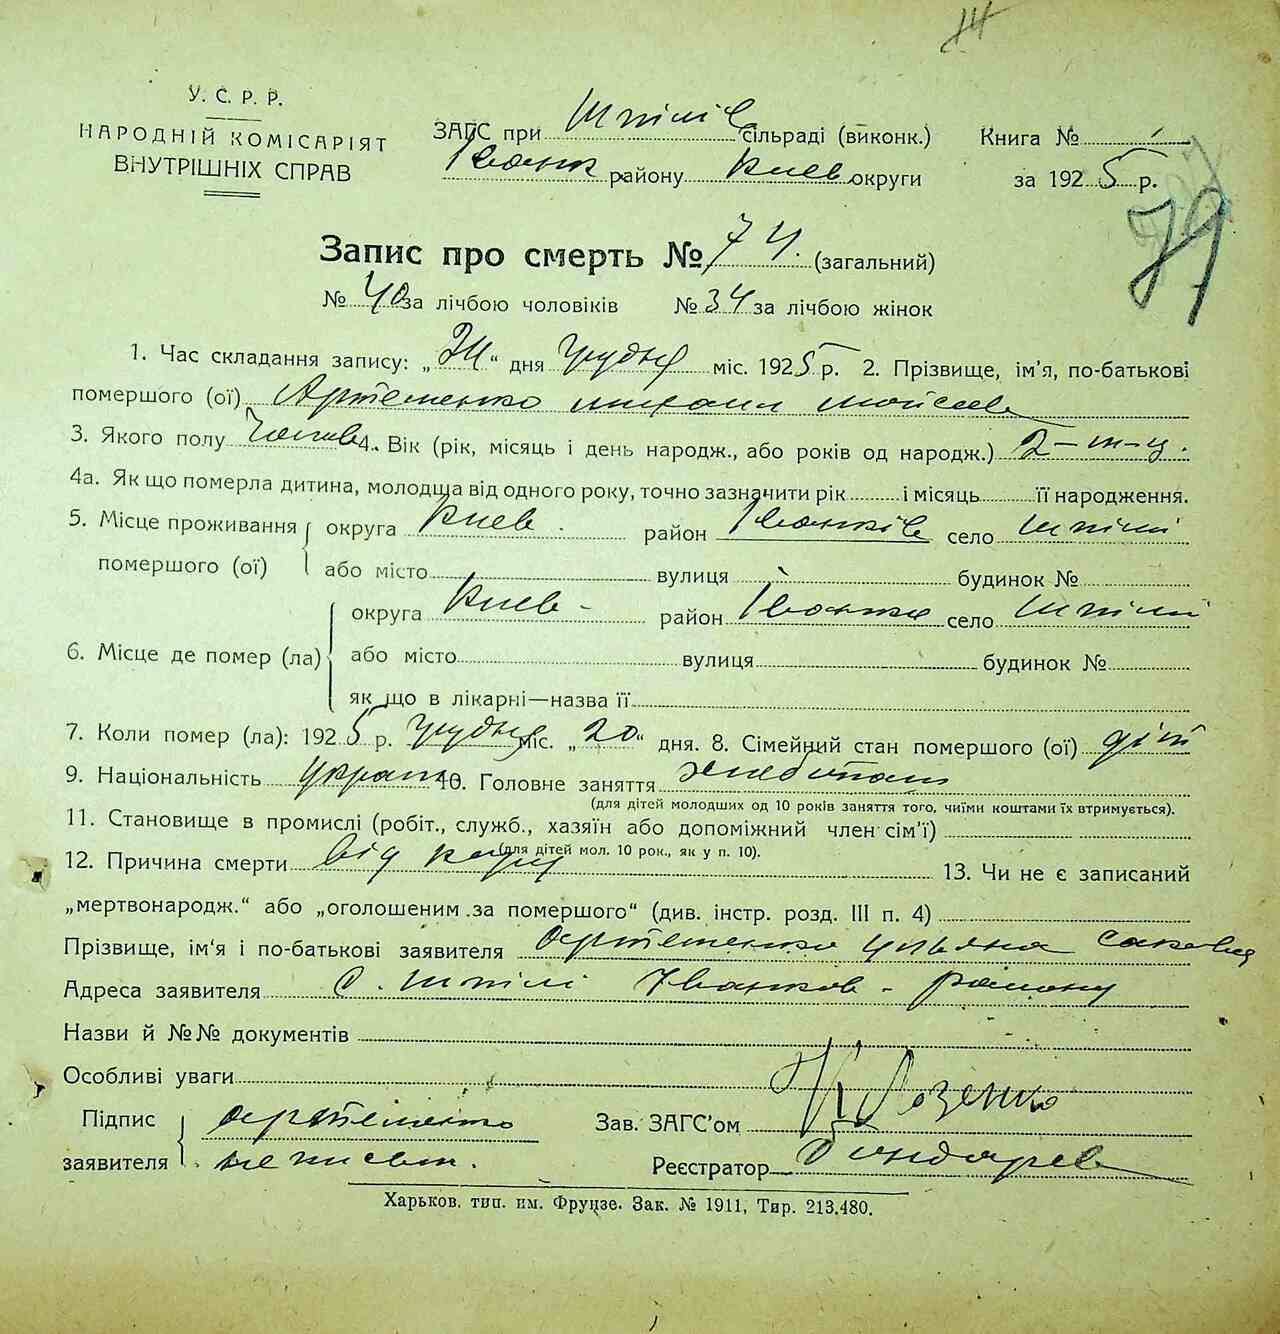 У. С. Р. Р.
НАРОДНІЙ КОМІСАРІЯТ
ВНУТРІШНІХ СПРАВ
ЗАГС при Шпілів сільраді (виконк.)
Іванк району Киев округи
Книга №
за 1925 р.
79
Запис про смерть № 74. (загальний)
№ 40 за лічбою чоловіків № 34 за лічбою жінок
1. Час складання запису: „ “ дня Грудня міс. 1925 р. 2. Прізвище, ім'я, по-батькові
помершого (ої) Артеменко михаил мойсеев
3. Якого полу чолов 4. Вік (рік, місяць і день народж., або років од народж.) 2-
4а. Як що померла дитина, молодша від одного року, точно зазначити рік і місяць її народження.
5. Місце проживання помершого (ої) округа Киев. район Іванків село Шпілі
або місто вулиця будинок №
6. Місце де помер (ла) округа Киев- район Іванків село Шпілі
або місто вулиця будинок №
як що в лікарні—назва її
7. Коли помер (ла): 1925 р. Грудня міс. „20“ дня. 8. Сімейний стан помершого (ої) діт
9. Національність украин 10. Головне заняття хлебопаш
(для дітей молодших од 10 років заняття того, чиїми коштами їх втримується).
11. Становище в промислі (робіт., служб., хазяїн або допоміжний член сім'ї)
(для дітей мол. 10 рок., як у п. 10).
12. Причина смерти від кору 13. Чи не є записаний
„мертвонародж.“ або „оголошеним за помершого“ (див. інстр. розд. III п. 4)
Прізвище, ім'я і по-батькові заявителя Артеменко Ульяна
Адреса заявителя с. Шпілі Іванков-району
Назви й №№ документів
Особливі уваги
Підпис заявителя Артеменко
не писем.
Зав. ЗАГС'ом
Реєстратор Бондарев
Харьков. тип. им. Фрунзе. Зак. № 1911, Тир. 213.480.